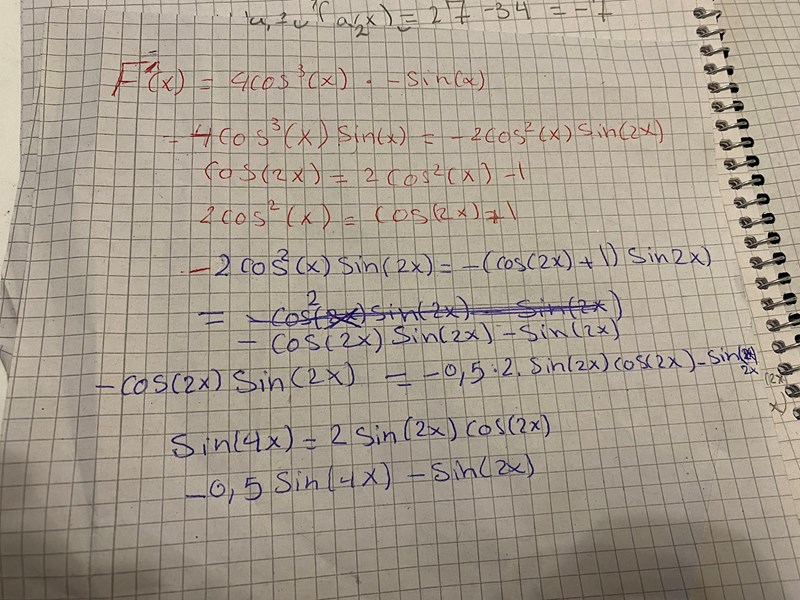 = 27 - 34 = -7
F'(x) = 4cos³(x) · -sin(x)
- 4cos³(x) sin(x) = -2cos²(x) sin(2x)
cos(2x) = 2cos²(x) -1
2cos²(x) = cos(2x)+1
-2cos²(x) sin(2x) = -(cos(2x)+1) sin2x)
= - cos(2x) sin(2x) - sin(2x)
-cos(2x) sin(2x) = -0,5·2·sin(2x)cos(2x)-sin 2x
sin(4x) = 2 sin(2x) cos(2x)
-0,5 sin(4x) - sin(2x)